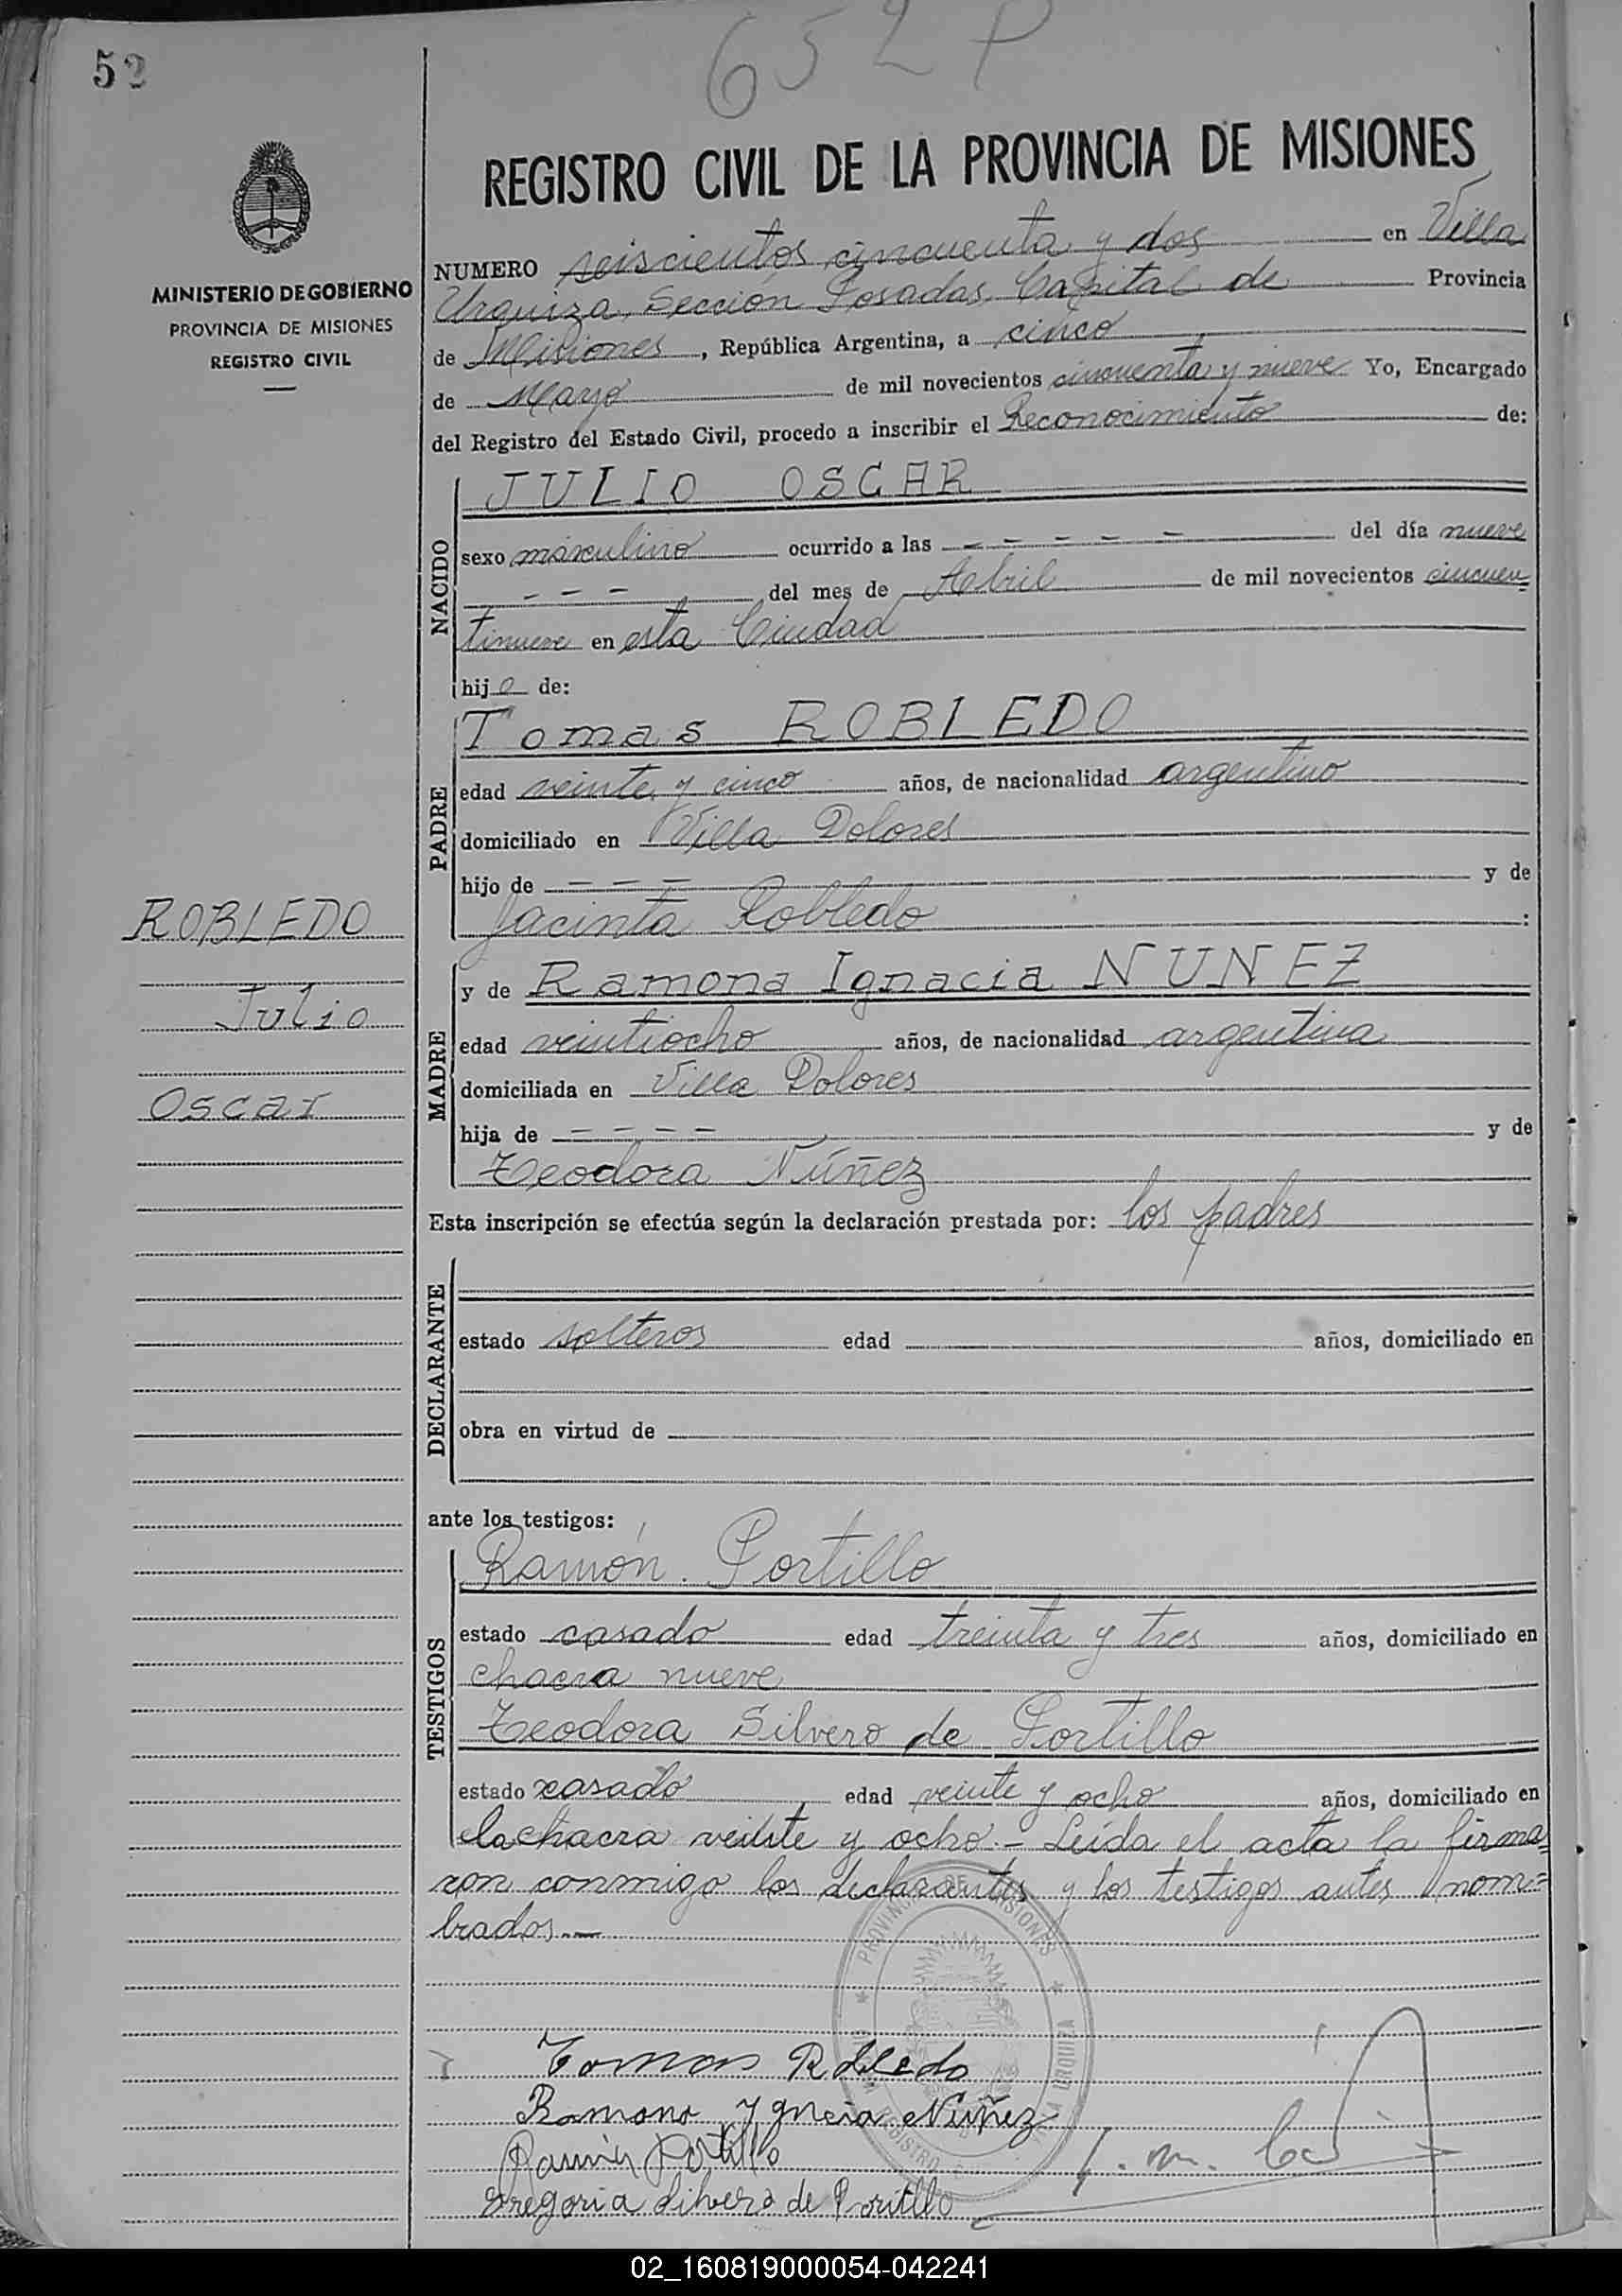 52
652 P
REGISTRO CIVIL DE LA PROVINCIA DE MISIONES
MINISTERIO DE GOBIERNO
PROVINCIA DE MISIONES
REGISTRO CIVIL
NUMERO seiscientos cincuenta y dos en Villa
Urquiza, Sección Posadas, Capital de Provincia
de Misiones, República Argentina, a cinco
de Mayo de mil novecientos cincuenta y nueve Yo, Encargado
del Registro del Estado Civil, procedo a inscribir el Reconocimiento de:
NACIDO
JULIO OSCAR
sexo masculino ocurrido a las - - - - - del día nueve
- - - del mes de Abril de mil novecientos cincuen=
tinueve en esta Ciudad
hijo de:
PADRE
Tomas ROBLEDO
edad veinte y cinco años, de nacionalidad argentino
domiciliado en Villa Dolores
hijo de - - - y de
Jacinta Robledo :
ROBLEDO
Julio
Oscar
MADRE
y de Ramona Ignacia NUNEZ
edad veintiocho años, de nacionalidad argentina
domiciliada en Villa Dolores
hija de - - - - y de
Teodora Núñez
Esta inscripción se efectúa según la declaración prestada por: los padres
DECLARANTE
estado solteros edad años, domiciliado en
obra en virtud de
ante los testigos:
TESTIGOS
Ramón Portillo
estado casado edad treinta y tres años, domiciliado en
chacra nueve
Teodora Silvero de Portillo
estado casado edad veinte y ocho años, domiciliado en
la chacra veinte y ocho.- Leída el acta la firma=
ron conmigo los declarantes y los testigos antes nom=
brados.-
PROVINCIA DE MISIONES
REGISTRO
VILLA URQUIZA
Tomas Robledo
Ramona Ygnacia Núñez
Ramón Portillo
Gregoria Silvero de Portillo
02_160819000054-042241